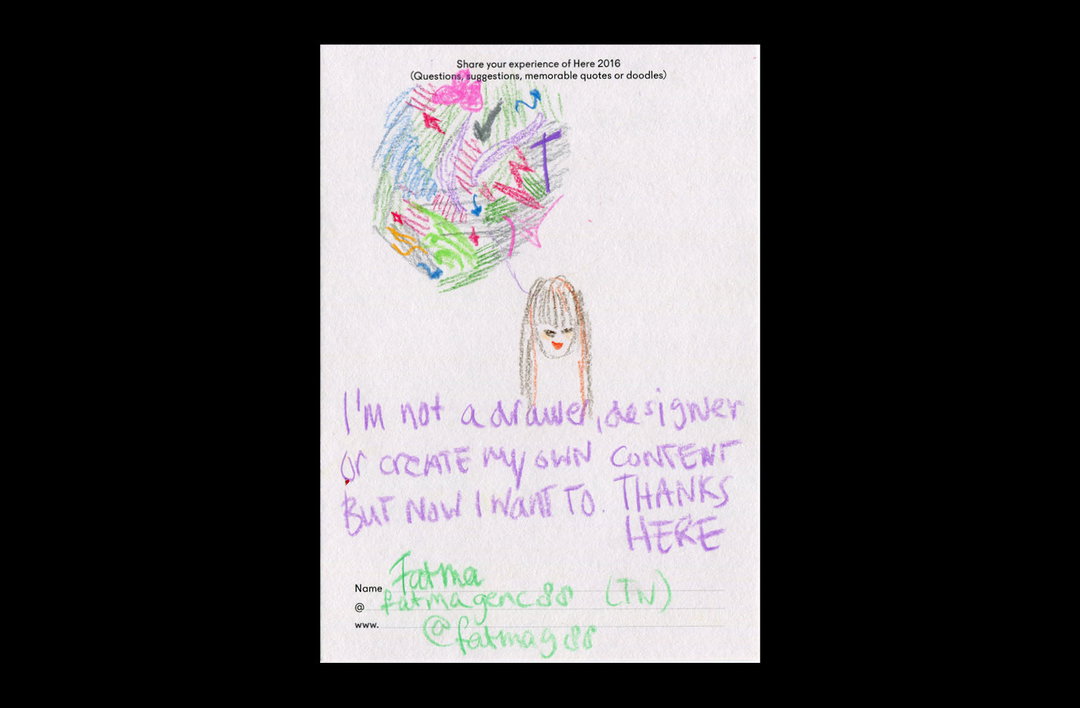 Share your experience of Here 2016
(Questions, suggestions, memorable quotes or doodles)
I'm not a drawer, designer
or CREATE MY OWN CONTENT
BUT NOW I WANT TO. THANKS
HERE
Name Fatma
@ fatmagenc88 (TN)
www. @fatmag88